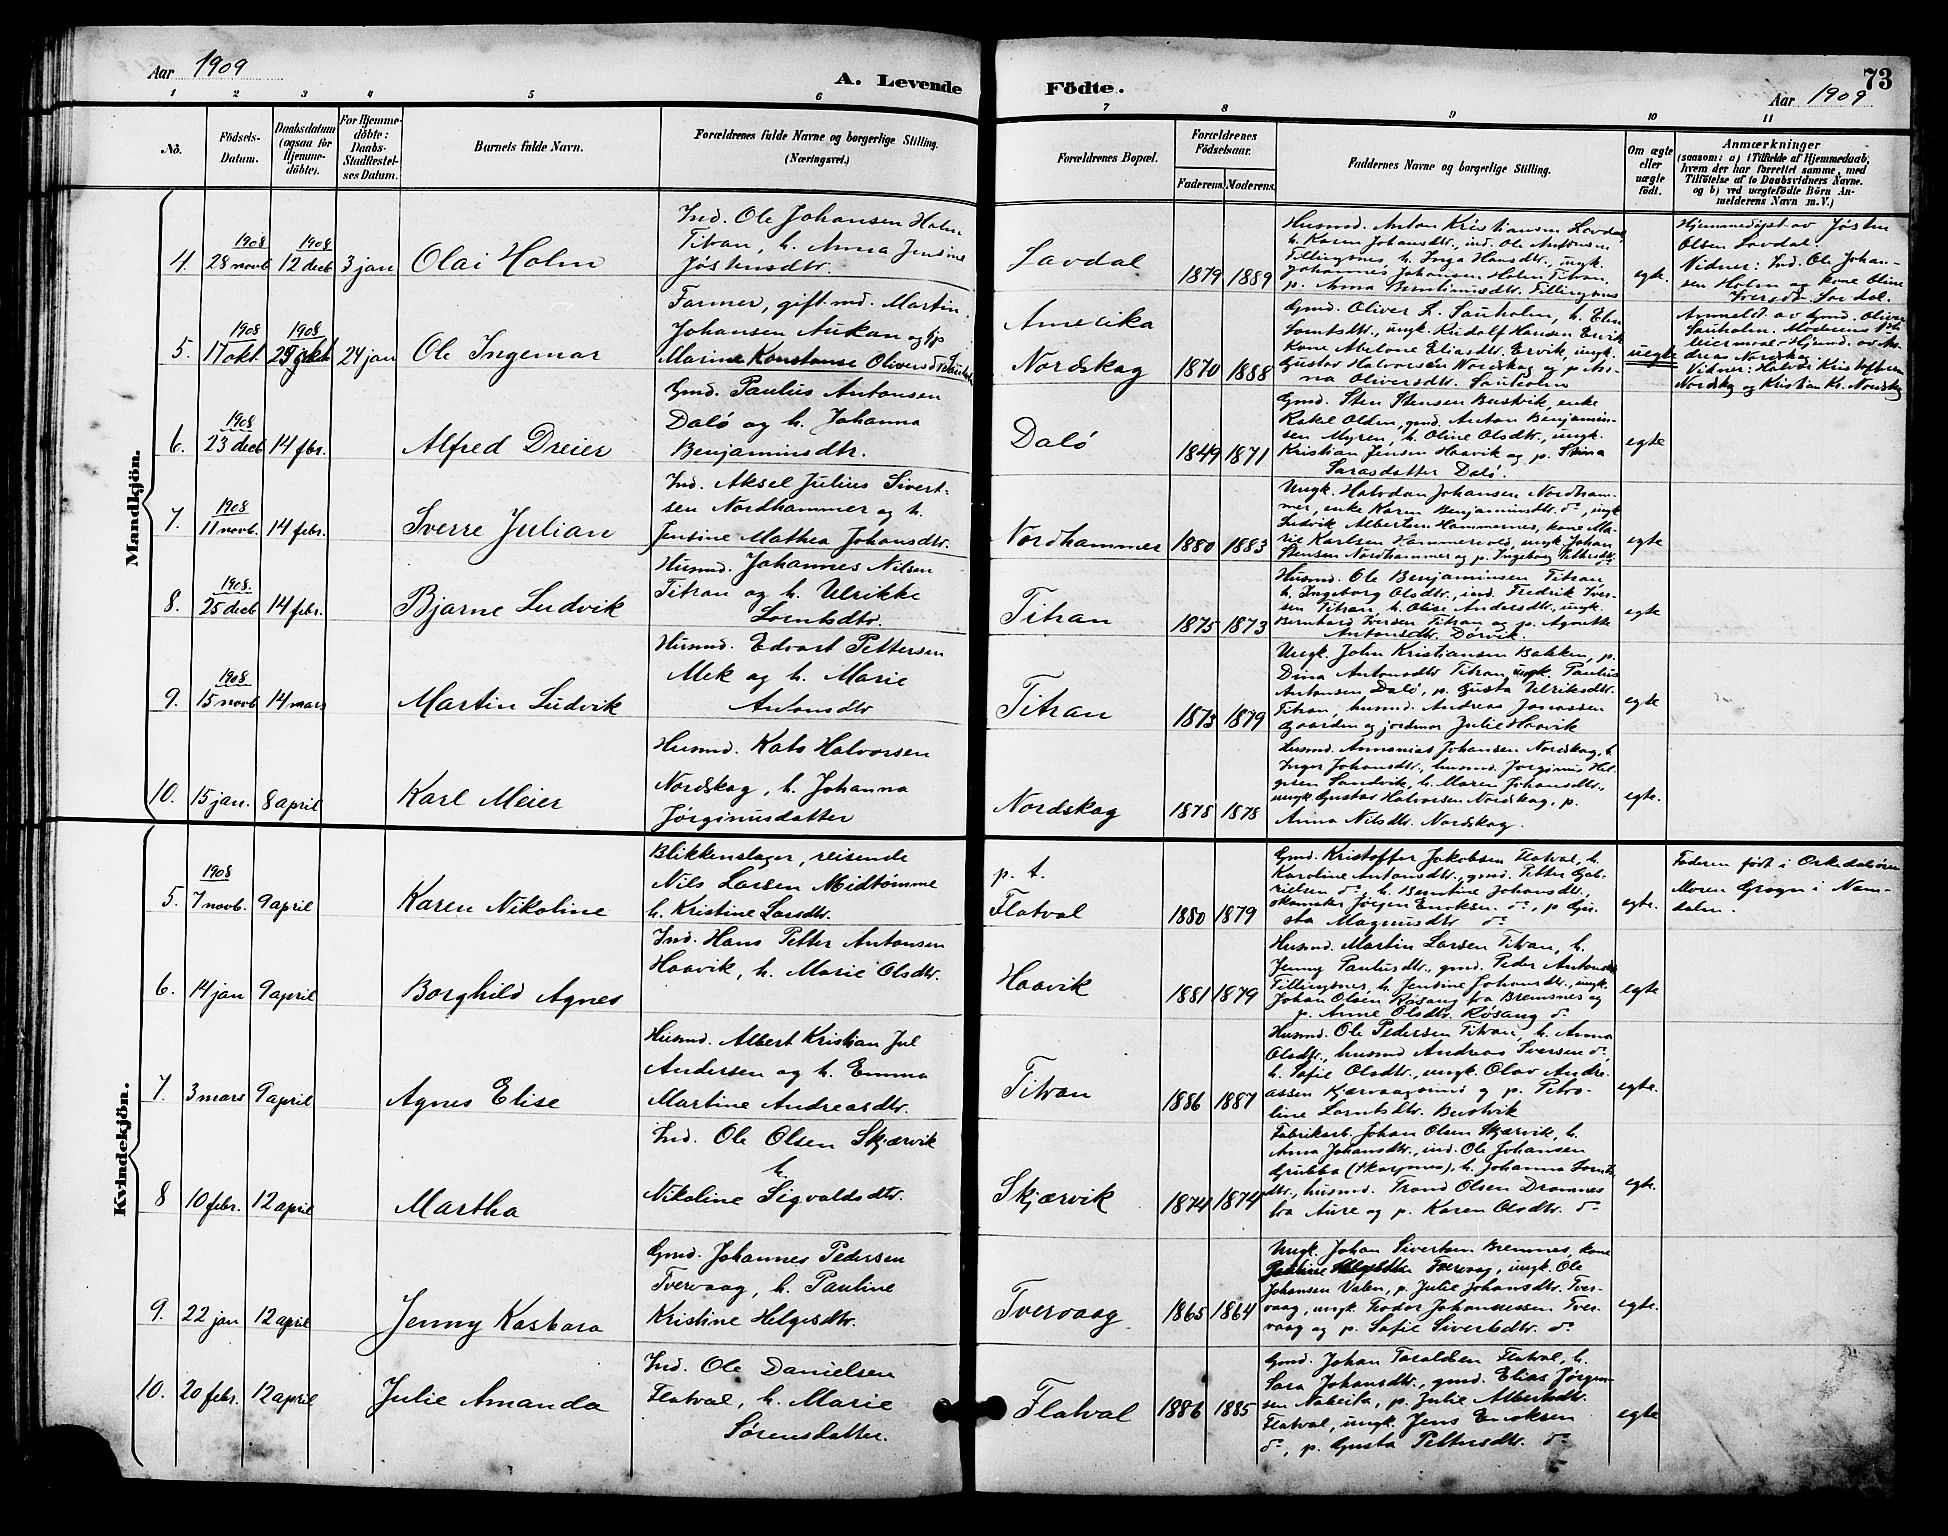 Aar 1909
A. Levende
Födte.
73
Aar 1909
1 2 3 4 5 6 7 8 9 10 11
No.
Födsels-
Datum.
Daabsdatum
(ogsaa for
Hjemme-
döbte).
For Hjemme-
döbte:
Daabs-
Stadfestel-
ses Datum.
Barnets fulde Navn.
Forældrenes fulde Navne og borgerlige Stilling.
(Næringsvei.)
Forældrenes Bopæl.
Forældrenes
Födselsaar.
Faderens. Moderens.
Faddernes Navne og borgerlige Stilling.
Om ægte
eller
uægte
födt.
Anmærkninger
(saasom: a) i Tilfælde af Hjemmedaab,
hvem der har forrettet samme, med
Tilföielse af to Daabsvidners Navne,
og b) ved uægtefödte Börn An-
melderens Navn m. V.)
Mandkjön.
4. 1908 28 novb 1908 12 decb 3 jan Olai Holm
Ind. Ole Johansen Holm
Titran, h. Anna Jensine
Jöstensdtr.
Savdal 1879 1889
Husmd. Anton Kristiansen Lovdal,
h. Karen Johansdtr., ind. Ole Antonsen
Tillingsnes, h. Inga Hansdtr., ungk.
Johannes Johansen Holm Titran,
p. Anna Berntinusdtr. Tillingsnes
egte.
Hjemmedöpt av Jösten
Olsen Savdal.
Vidner: Ind. Ole Johan-
sen Holm og kone Oline
5. 1908 17 okt. 1908 24 jan Ole Ingemar
Farmer, gift md. Martin
Johansen Aukan og p.
Marine Konstanse Oliversdtr. Sauholm
Amerika
Nordskag 1870 1888
Gmd. Oliver L. Sauholm, h. Elen
Lorntsdtr., ungk. Rudolf Hansen Ervik
kone Abelone Eliasdtr. Ervik, ungk.
Gustav Halvorsen Nordskag og p. An-
na Oliversdtr. Sauholm
uegte
Anmeldt av Gmd. Oliver
Sauholm. Moderens 1ste
leiermaal. Hjemd. av An-
dreas Nordskag
Vidner: Halvor Kristoffersen
Nordskg og Kristian Kr. Nordskag
6. 1908 23 decb 14 fbr. Alfred Dreier
Gmd. Paulus Antonsen
Dalö og h. Johanna
Benjaminsdtr.
Dalö 1849 1871
Gmd. Sten Stensen Bustvik, enke
Rakel Olden, gmd. Anton Benjamin-
sen Myren, h. Oline Olsdtr., ungk.
Kristian Jensen Haavik og p. Stina
Sarasdatter Dalö.
egte
7. 1908 11 novb. 14 febr. Sverre Julian
Ind. Aksel Julius Sivert-
sen Nordhammer og h.
Jensine Mathea Johansdtr.
Nordhammer 1880 1883
Ungk. Halvdan Johansen Nordham-
mer, enke Karen Benjaminsdtr. do, ungk
Ludvik Albertsen Hammernes, kone Ma-
rie Karlsen Hammervold, ungk. Johan
Stensen Nordhammer og p. Ingeborg
egte
8. 1908 25 decb 14 febr. Bjarne Ludvik
Husmd. Johannes Nilsen
Titran og h. Ulrikke
Lorntsdtr.
Titran 1875 1873
Husmd. Ole Benjaminsen Titran,
h. Ingeborg Olsdtr., ind. Fredrik Iver-
sen Titran, h. Olise Andersdtr., ungk.
Bernhard Iversen Titran og p. Agnethe
Antonsdtr. Dörvik.
egte
9. 1908 15 novb 14 mars Martin Ludvik
Husmd. Edvart Pettersen
Mek og h. Marie
Antonsdtr
Titran 1873 1879
Ungk. John Kristiansen Bakken, p.
Dina Antonsdtr Titran, ungk. Paulus
Antonsen Dalö, p. Gusta Ulriksdtr.
Titran, husmd. Andreas Jonassen
Gaarden og jordmor Julie Haavik
egte
10. 15 jan. 8 april Karl Meier
Husmd. Kato Halvorsen
Nordskag, h. Johanna
Jörginusdatter
Nordskag 1878 1878
Husmd. Annanias Johansen Nordskag, h.
Inger Johansdtr., husmd. Jörginus Hel-
gesen Sandvik, h. Maren Johansdtr.,
ungk Gustav Halvorsen Nordskag, p.
Anna Nilsdtr. Nordskag.
egte.
Kvindekjön.
5. 1908 7 novb. 9 april Karen Nikoline
Blikkenslager, reisende
Nils Larsen Midtömme
h. Kristine Larsdtr.
p. t.
Flatval 1880 1879
Gmd. Kristoffer Jakobsen Flatval, h.
Karoline Antonsdtr., gmd. Petter Gab-
rielsen do, h. Berntine Johansdtr.,
skomaker Jörgen Eriksen do, p Gu-
sta Magnusdtr do
egte.
Faderen födt i Orkedalsören
Moren Grogn i Nam-
dalen.
6. 14 jan 9 april Borghild Agnes
Ind. Hans Petter Antonsen
Haavik, h. Marie Olsdtr.
Haavik 1881 1879
Husmd. Martin Larsen Titran, h.
Jenny Paulusdtr., gmd. Peder Antonsen
Tillingsnes, h. Jensine Johansdtr., ungk.
Johan Olsen Rösang fra Bremsnes og
p. Anne Olsdtr. Rösang do
egte
7. 3 mars 9 april Agnes Elise
Husmd. Albert Kristian Jul
Andersen og h. Emma
Martine Andreasdtr.
Titran 1886 1887
Husmd. Ole Pedersen Titran, h. Anna
Olsdtr., husmd Andreas Iversen do,
h. Sofie Olsdtr., ungk. Olav Andre-
assen Kjærvaagsund og p. Petro-
line Lorntsdtr. Bustvik
egte.
8 10 febr. 12 april Martha
Ind. Ole Olsen Skjærvik
h.
Nikoline Sigvaldsdtr.
Skjærvik 1874 1874
Fabrikarb. Johan Olsen Skjærvik, h.
Anna Johansdtr., ind. Ole Johansen
Grubba (Skagnes), h. Johanna Lornts-
dtr., husmd. Trond Olsen Dromnes
fra Aure og p. Karen Olsdtr. do
egte.
9. 22 jan 12 april Jenny Kasbara
Gmd. Johannes Pedersen
Tvervaag, h. Pauline
Kristine Helgesdtr.
Tvervaag 1865 1864
Ungk. Johan Sivertsen Bremnes, kone
Tvervaag, ungk. Ole
Johansen Valen, p. Julie Johansdtr. Tver-
vaag, ungk. Teodor Johannessen Tver-
vaag og p. Sofie Sivertsdtr. do
egte.
10. 20 febr. 12 april Julie Amanda
Ind. Ole Danielsen
Flatval, h. Marie
Sörensdatter.
Flatval 1886 1885
Gmd. Johan Taraldsen Flatval, h.
Sara Johansdtr., gmd. Elias Jörgen-
sen Nabeita, p. Julie Albertsdtr.
Flatval, ungk. Jens Eriksen
do, p. Gusta Pettersdtr. do
egte